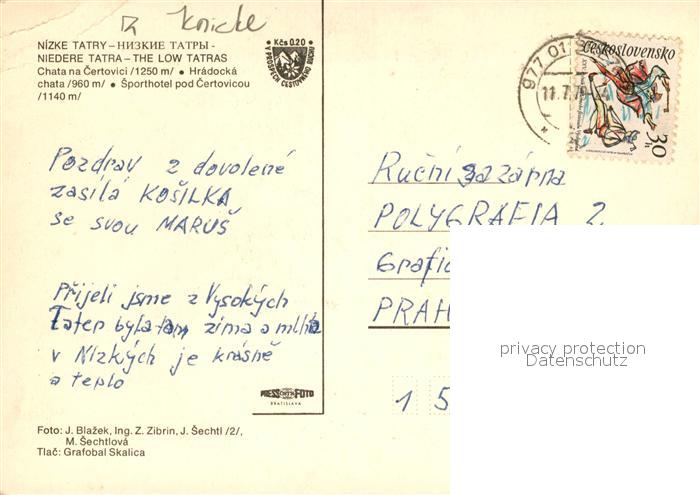 Knicke
NÍZKE TATRY – НИЗКИЕ ТАТРЫ -
NIEDERE TATRA – THE LOW TATRAS
Chata na Čertovici /1250 m/ • Hrádocká
chata /960 m/ • Športhotel pod Čertovicou
/1140 m/
Kčs 0.20
Pozdrav z dovolené
zasílá KOŠILKA
se svou MARUŠ
Přijeli jsme z Vysokých
Tater byla tam zima a mlha
v Nízkých je krásně
a teplo
PRESSFOTO
BRATISLAVA
Foto: J. Blažek, Ing. Z. Zibrin, J. Šechtl /2/,
M. Šechtlová
Tlač: Grafobal Skalica
977 01
11.7.79-24
Československo
30 h
Ruční sazárna
POLYGRAFIA 2
Grafic
PRAH
1 5
privacy protection
Datenschutz